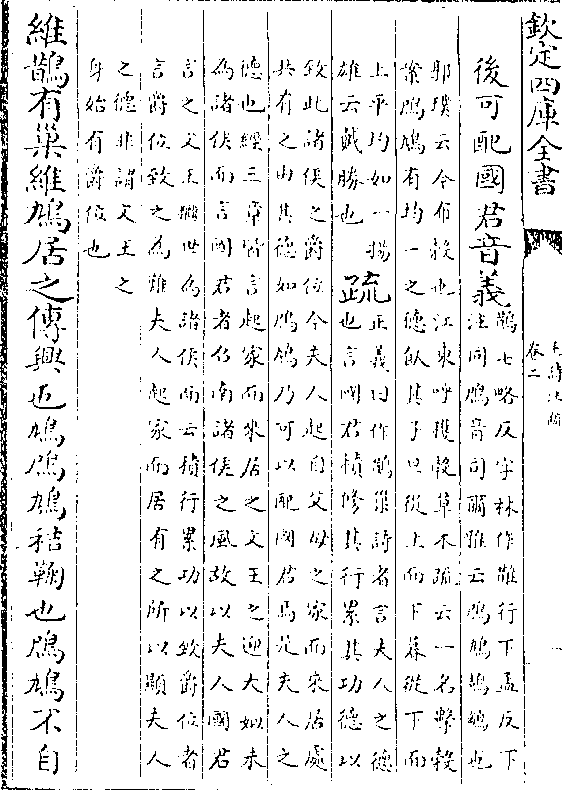 欽定四庫全書
毛詩注疏
卷二
後可配國君音義
鵲七略反字林作䧿行下孟反下
注同鳲音司爾雅云鳲鳩鴶鵴也
郭璞云今布榖也江東呼穫榖草木疏云一名擊榖
案鳲鳩有均一之德飤其子旦從上而下暮從下而
上平均如一揚
雄云戴勝也
疏
正義曰作鵲巢詩者言夫人之德
也言國君積修其行累其功德以
致此諸侯之爵位今夫人起自父母之家而來居處
共有之由其德如鳲鳩乃可以配國君焉是夫人之
德也經三章皆言起家而來居之文王之迎大姒未
為諸侯而言國君者召南諸侯之風故以夫人國君
言之文王繼世為諸侯而云積行累功以致爵位者
言爵位致之為難夫人起家而居有之所以顯夫人
之德非謂文王之
身始有爵位也
維鵲有巢維鳩居之傳興也鳩鳲鳩秸鞠也鳲鳩不自